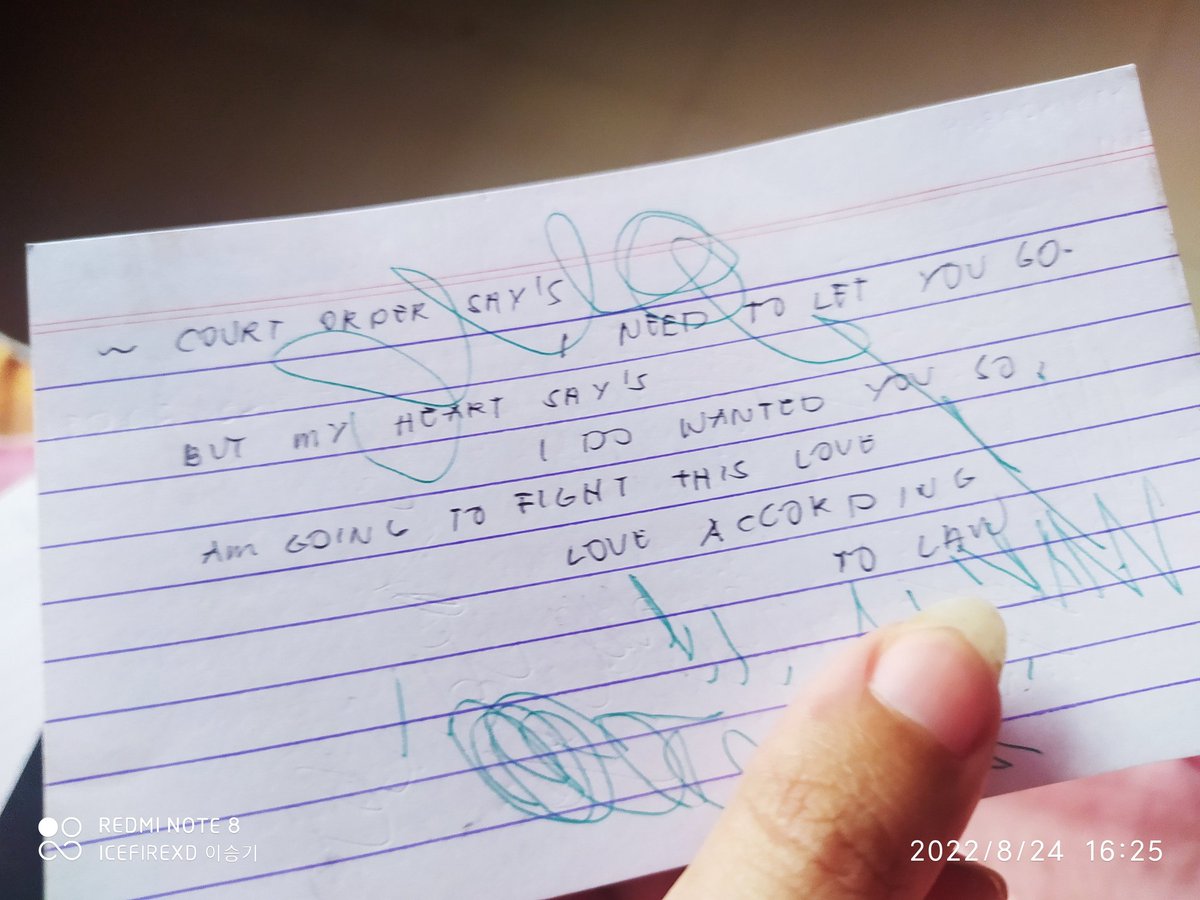 ~ COURT ORDER SAY'S
I NEED TO LET YOU GO-
BUT MY HEART SAY'S
I DO WANTED YOU SO,
AM GOING TO FIGHT THIS LOVE
LOVE ACCORDING
TO LAW
REDMI NOTE 8
ICEFIREXD 이승기
2022/8/24 16:25